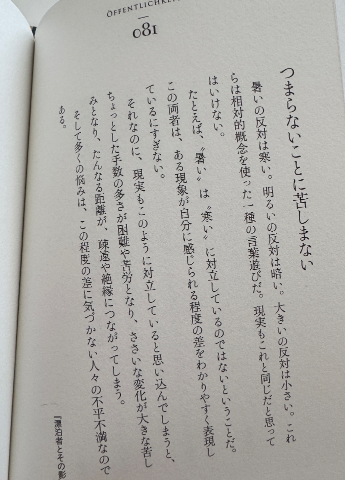 ÖFFENTLICHKEI
081
つまらないことに苦しまない
暑いの反対は寒い。明るいの反対は暗い。大きいの反対は小さい。これ
らは相対的概念を使った一種の言葉遊びだ。現実もこれと同じだと思って
はいけない。
たとえば、〝暑い〟は〝寒い〟に対立しているのではないということだ。
この両者は、ある現象が自分に感じられる程度の差をわかりやすく表現し
ているにすぎない。
それなのに、現実もこのように対立していると思い込んでしまうと、
ちょっとした手数の多さが困難や苦労となり、ささいな変化が大きな苦し
みとなり、たんなる距離が、疎遠や絶縁につながってしまう。
そして多くの悩みは、この程度の差に気づかない人々の不平不満なので
ある。
『漂泊者とその影